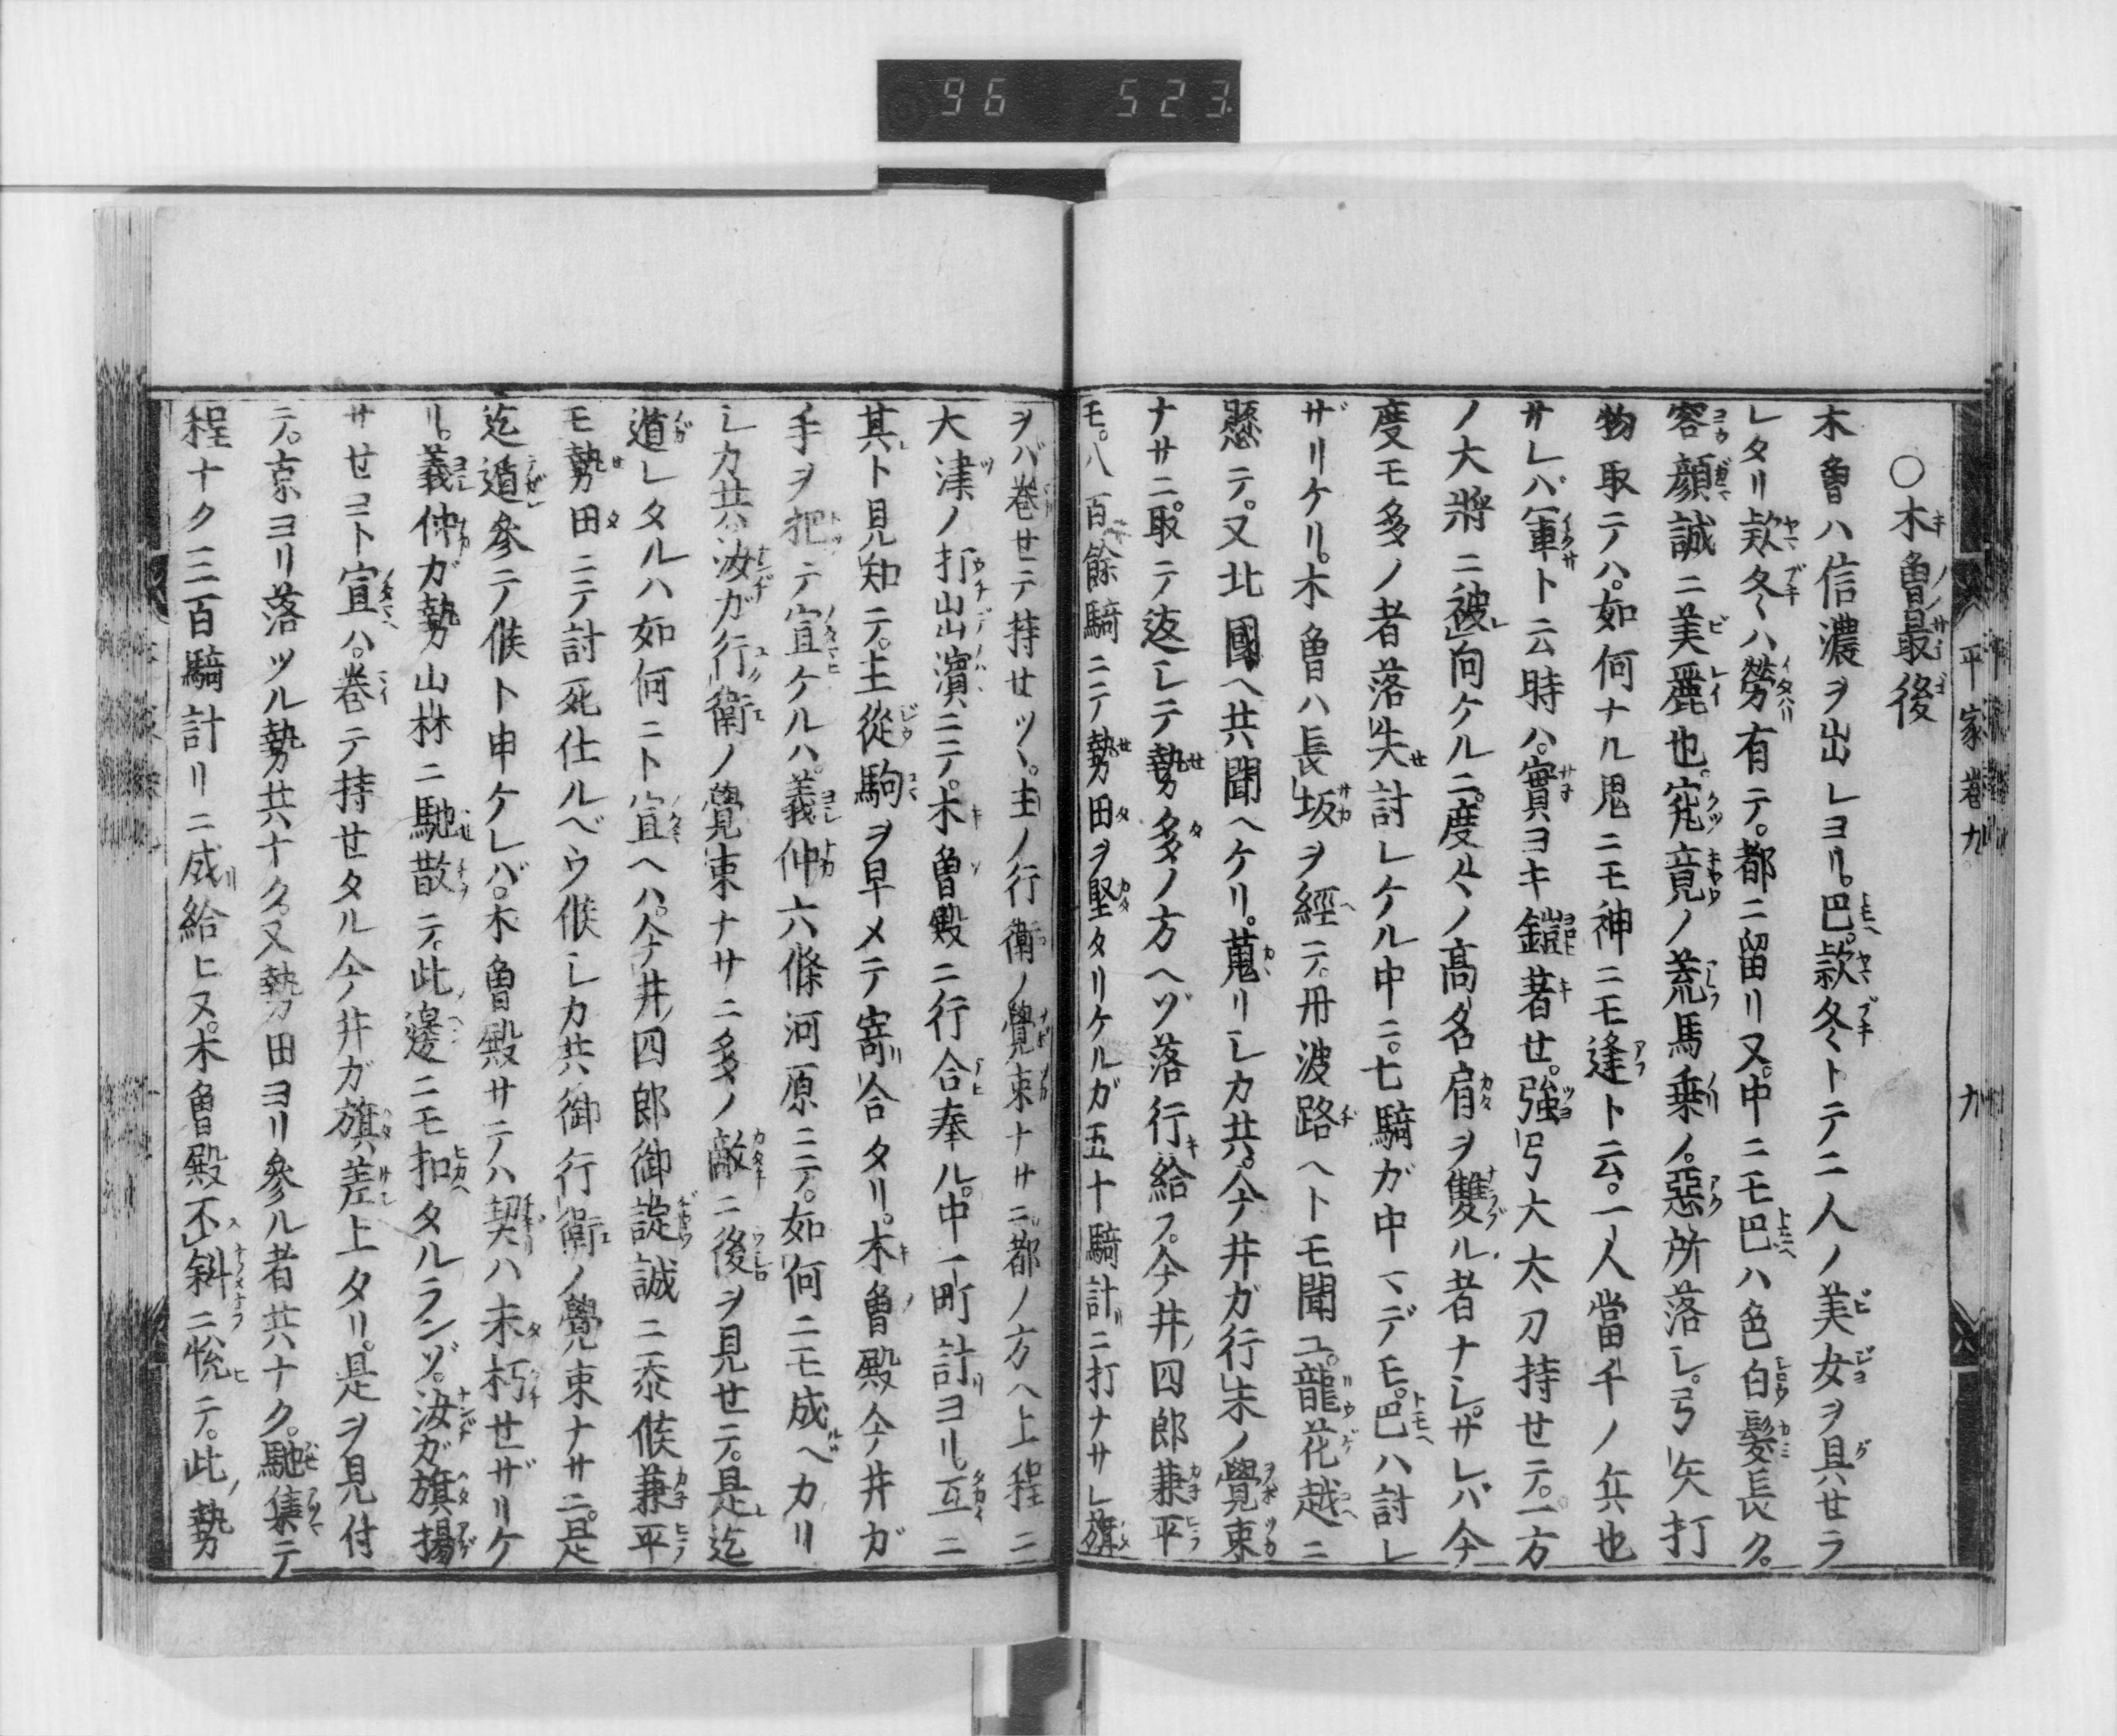 96 523
平家巻九 九
〇木曾最後
木曾ハ信濃ヲ出シヨリ。巴。款冬トテ二人ノ美女ヲ具セラ
レタリ款冬ハ勞有テ。都ニ留リヌ。中ニモ巴ハ色白髮長ク。
容顔誠ニ美麗也。究竟ノ荒馬乗ノ。惡所落シ。弓矢打
物取テハ。如何ナル鬼ニモ神ニモ逢ト云。一人當千ノ兵也
サレバ軍ト云時ハ。實ヨキ鎧著セ。強弓大太刀持セテ。一方
ノ大將ニ被向ケルニ。度々ノ高名肩ヲ雙ル者ナシ。サレバ今
度モ多ノ者落失討レケル中ニ。七騎ガ中マデモ。巴ハ討レ
ザリケリ。木曾ハ長坂ヲ經テ。丹波路ヘトモ聞ユ。龍花越ニ
懸テ。又北國ヘ共聞ヘケリ。蒐リシカ共。今井ガ行末ノ覺束
ナサニ。取テ返シテ勢多ノ方ヘゾ落行給フ。今井四郎兼平
モ。八百餘騎ニテ勢田ヲ堅タリケルガ五十騎計ニ打ナサレ旗
ヲバ巻セテ持セツヽ。主ノ行衛ノ覺束ナサニ。都ノ方ヘ上程ニ
大津ノ打出濱ニテ。木曾殿ニ行合奉ル。中一町計ヨリ。互ニ
其ト見知テ。主從駒ヲ早メテ寄合タリ。木曾殿今井ガ
手ヲ把テ宣ケルハ。義仲六條河原ニテ。如何ニモ成ベカリ
シカ共。汝ガ行衛ノ覺束ナサニ多ノ敵ニ後ヲ見セテ。是迄
遁レタルハ如何ニト宣ヘハ。今井四郎御諚誠ニ忝候兼平
モ勢田ニテ討死仕ルベウ候シカ共御行衛ノ覺束ナサニ。是
迄遁參テ候ト申ケレバ。木曾殿サテハ契ハ未朽セザリケ
リ。義仲ガ勢山林ニ馳散テ。此邊ニモ扣タルランゾ。汝ガ旗揚
サセヨト宣ハ。巻テ持セタル今井ガ旗差上タリ。是ヲ見付
テ。京ヨリ落ツル勢共ナク。又勢田ヨリ參ル者共ナク。馳集テ
程ナク三百騎計リニ成給ヒヌ。木曾殿不斜ニ悦テ。此勢